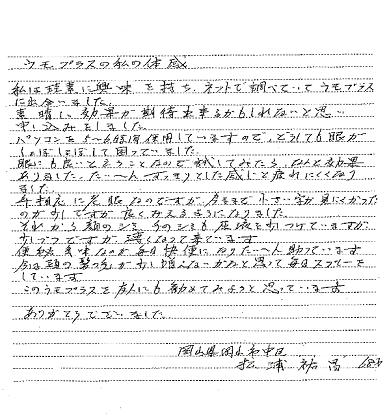 ウモプラスの私の体感
私は珪素に興味を持ち、ネットで調べていてウモプラス
に出会いました。
素晴に効果が期待出来るかもしれないと思い
申し込みをしました。
パソコンを5〜6時間使用していますので、どうしても眼が
しょぼしょぼして困っていました。
眼にも良いと言うことなので試してみたら、なんと効果
ありました。たいへんすっきりとした感じと疲れにくくなり
ました。
年相応に老眼なのですが、今まで小さい字が見にくかった
のが少しですが良くみえるようになりました。
それから顔のシミ、うでのシミも原液を少しつけていますが
少しづつですが薄くなって来ています
便秘気味なのが毎日快便になりたいへん助っています
今は頭の髪の毛が少し増えないかなと思って毎日スプレーを
しています
このウモプラスを友人にも勧めてみようと思っています
ありがとうございました。
岡山県岡山市中区
松浦祐昌 68才